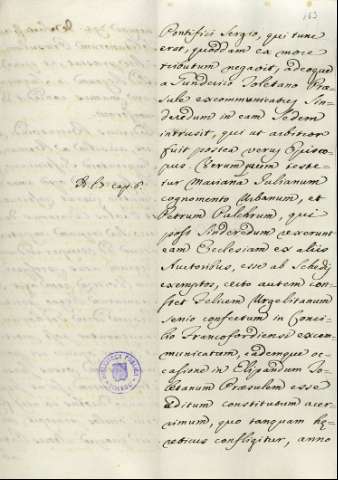 183
Pontifici Sergio, qui tunc
erat, quoddam ex more
tributum negavit, adeoque
a Gunderico Toletano Præ
sule excommunicatus, Sin
deredum in eam Sedem
intrusit, qui ut arbitror
fuit postea verus Episco
pus. Verum quum teste
tur Mariana Iulianum
cognomento Urbanum, et
Petrum Pulchrum, qui
post Sinderedum rexerunt
eam Ecclesiam ex aliis
Auctoribus, esse ab Schedis
exemptos, certo autem con
stet Felicem Urgelitanum
senio confectum in Conci
lio Francofordiensi excom
municatum, eademque oc
casione in Elipandum To
letanum Præsulem esse
editum constitutum acer
rimum, quo tanquam hæ
reticus confligitur, anno
cap. 6.
BIBLIOTECA PUBLICA